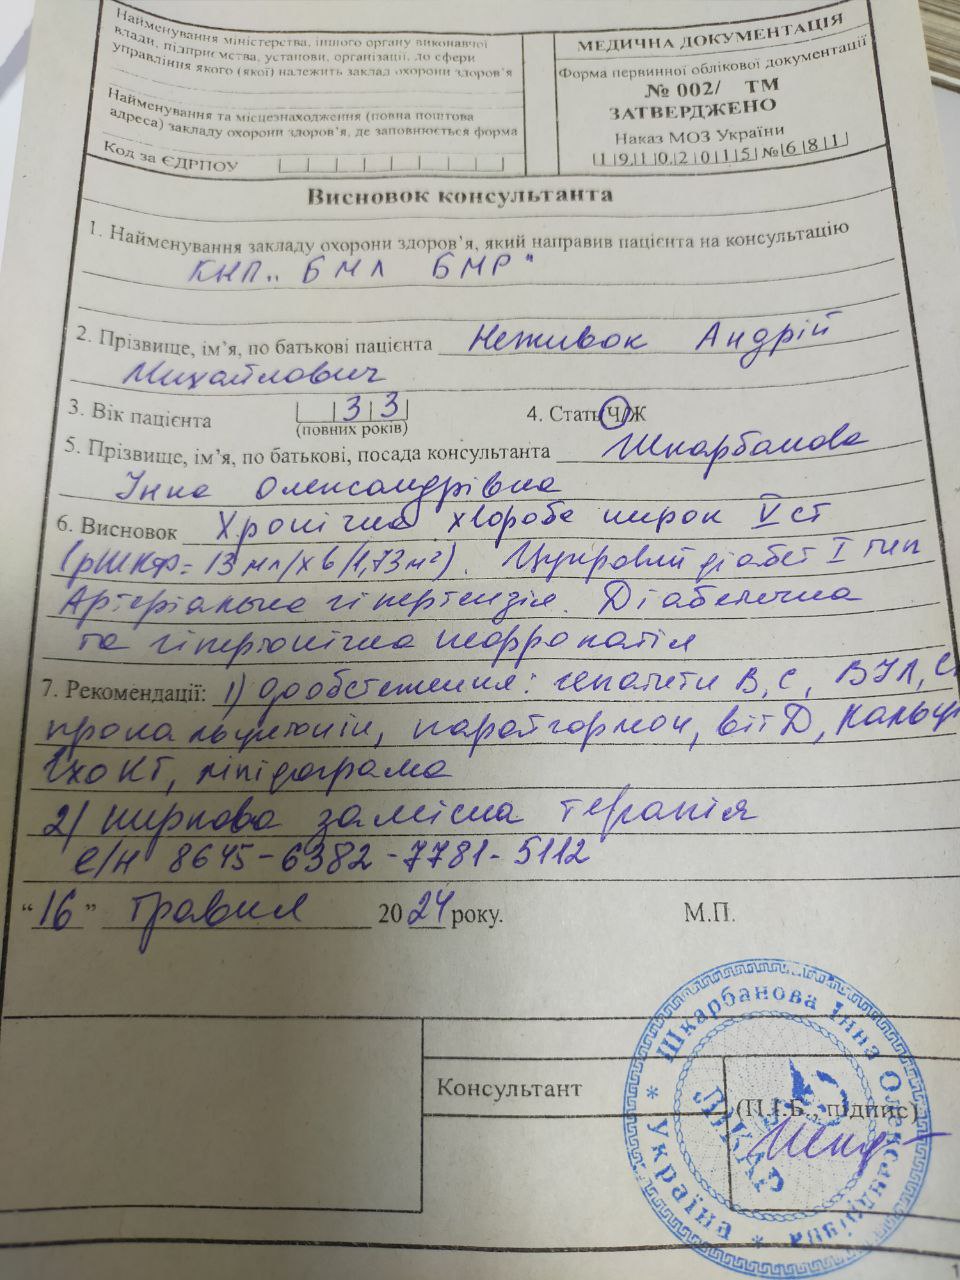 Найменування міністерства, іншого органу виконавчої
влади, підприємства, установи, організації, до сфери
управління якого (якої) належить заклад охорони здоров'я
Найменування та місцезнаходження (повна поштова
адреса) закладу охорони здоров'я, де заповнюється форма
Код за ЄДРПОУ
МЕДИЧНА ДОКУМЕНТАЦІЯ
Форма первинної облікової документації
№ 002/ ТМ
ЗАТВЕРДЖЕНО
Наказ МОЗ України
19102015 № 681
Висновок консультанта
1. Найменування закладу охорони здоров'я, який направив пацієнта на консультацію
КНП „БМЛ БМР"
2. Прізвище, ім'я, по батькові пацієнта Неживок Андрій
Михайлович
3. Вік пацієнта 33 4. Стать Ч/Ж
(повних років)
5. Прізвище, ім'я, по батькові, посада консультанта Шкарбанова
Інна Олександрівна
6. Висновок Хронічна хвороба нирок V ст
(рШКФ = 13 мл/хв/1,73м²). Цукровий діабет I тип
Артеріальна гіпертензія. Діабетична
та гіпертонічна нефропатія
7. Рекомендації: 1) дообстеження: гепатити В, С, ВІЛ,
прокальцитонін, паратгормон, віт Д,
ЕхоКГ, ліпідограма
2) ниркова замісна терапія
е/н 8645-6382-7781-5112
"16" травня 2024 року. М.П.
Консультант
(П.І.Б., підпис)
Шкарбанова Інна Олександрівна * Україна *
ЛІКАР